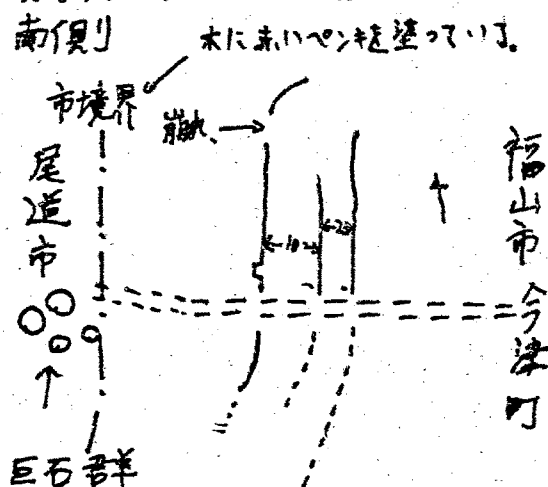 南側
木に赤いペンキを塗っている。
市境界
崩れ
尾道市
福山市今津町
←10→
巨石群